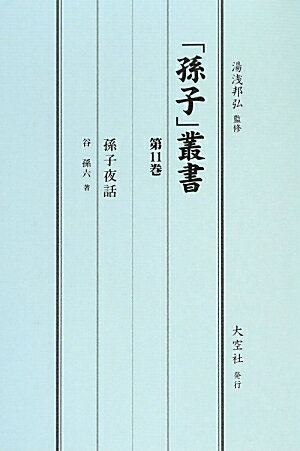 湯浅邦弘 監修
「孫子」叢書
第11巻
孫子夜話
谷 孫六 著
大空社 発行